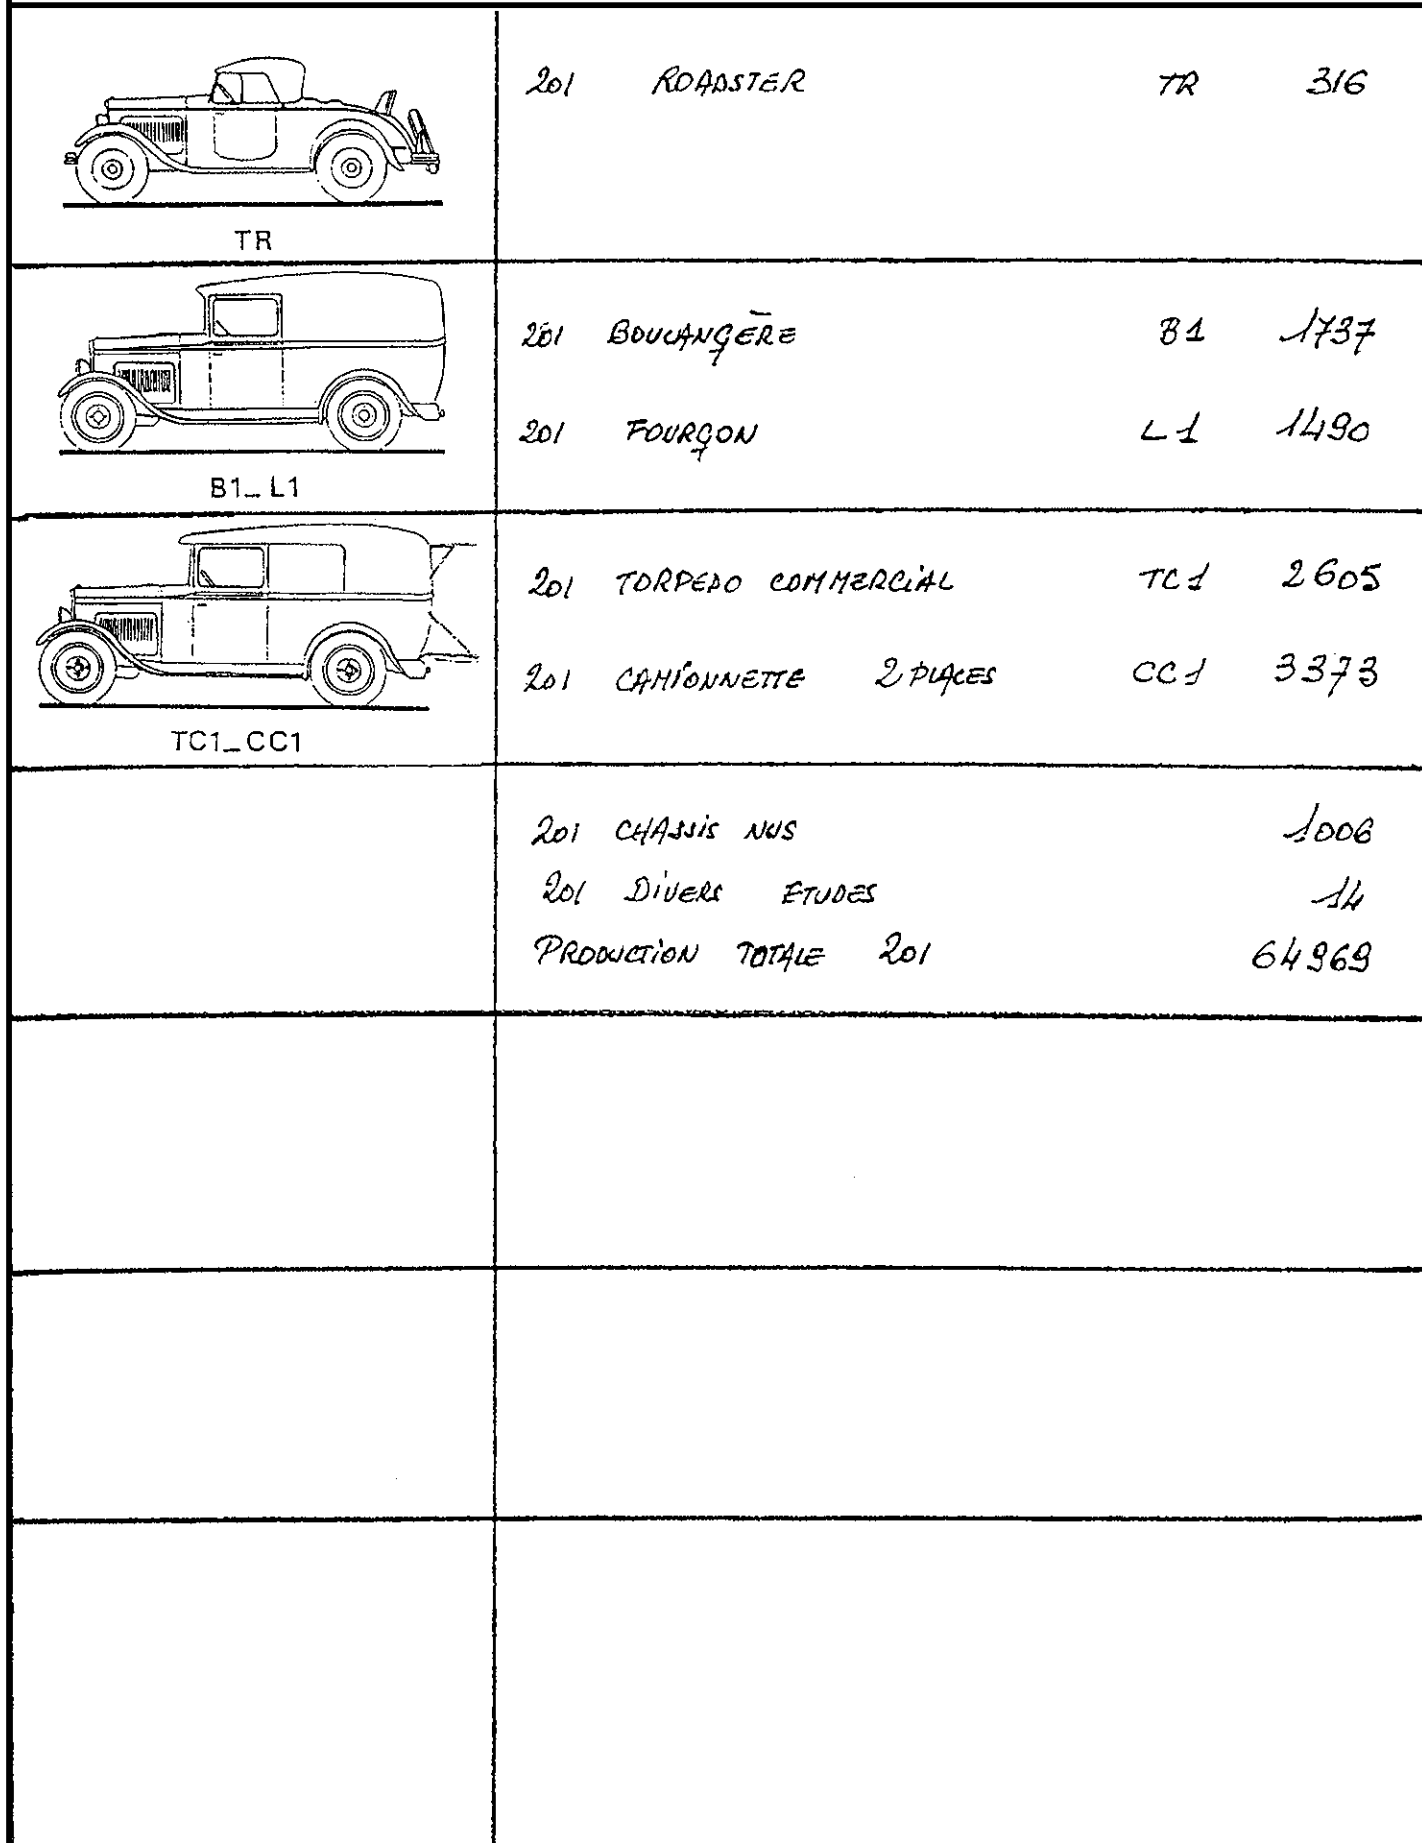 201 ROADSTER TR 316
TR
201 BOULANGÈRE B1 1737
201 FOURGON L1 1490
B1_L1
201 TORPEDO COMMERCIAL TC1 2605
201 CAMIONNETTE 2 PLACES CC1 3373
TC1_CC1
201 CHASSIS NUS 1006
201 DIVERS ETUDES 14
PRODUCTION TOTALE 201 64969